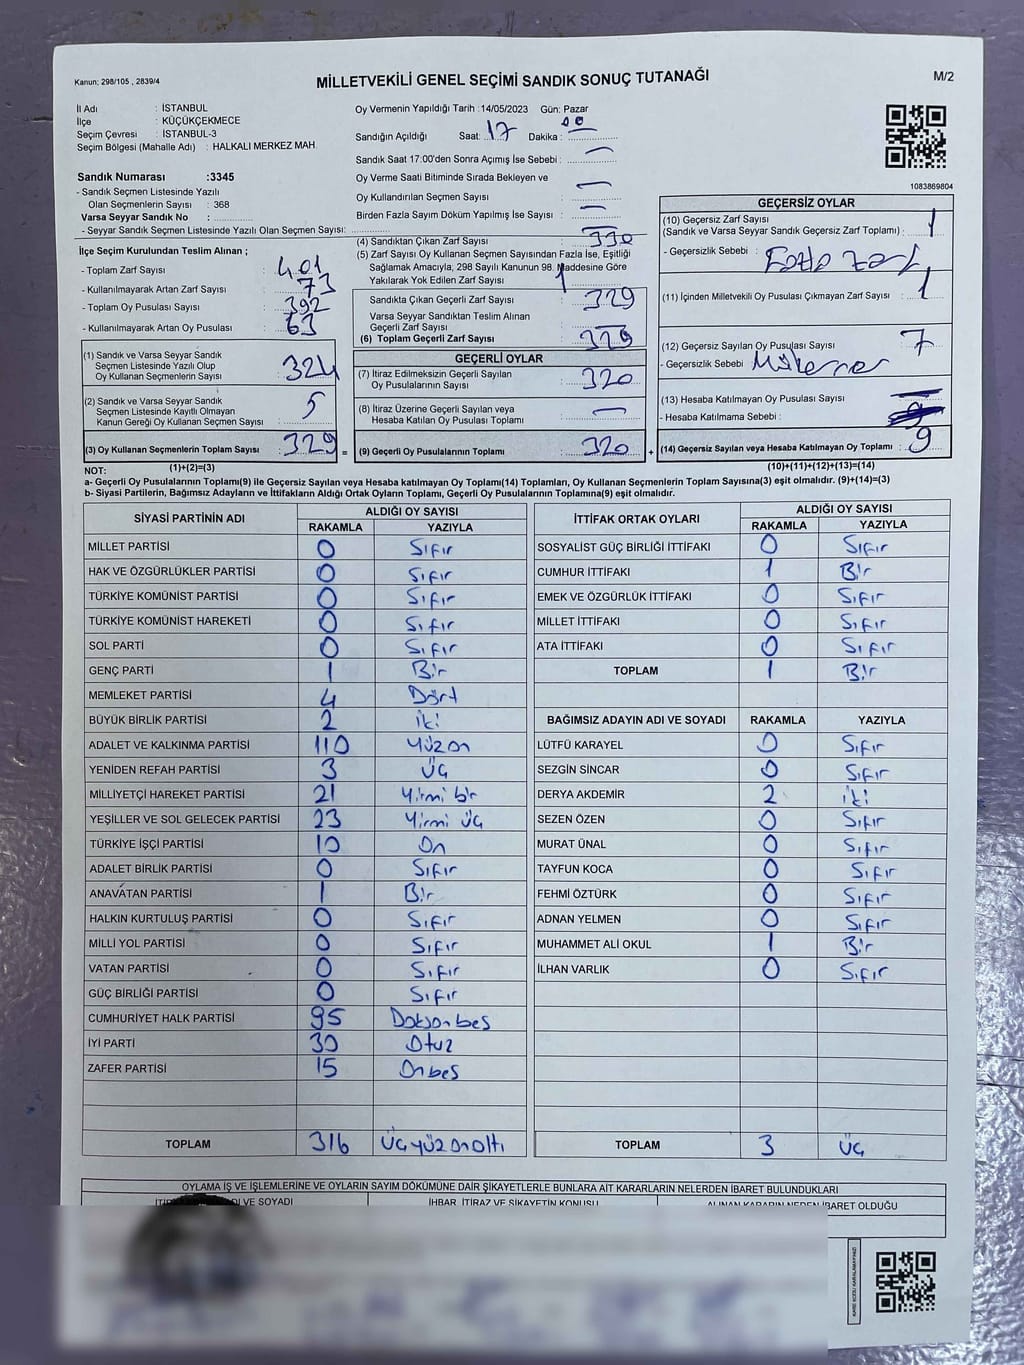 Kanun: 298/105 , 2839/4
MİLLETVEKİLİ GENEL SEÇİMİ SANDIK SONUÇ TUTANAĞI
M/2
İl Adı : İSTANBUL
İlçe : KÜÇÜKÇEKMECE
Seçim Çevresi : İSTANBUL-3
Seçim Bölgesi (Mahalle Adı) : HALKALI MERKEZ MAH.
Sandık Numarası :3345
- Sandık Seçmen Listesinde Yazılı
Olan Seçmenlerin Sayısı : 368
Varsa Seyyar Sandık No :
- Seyyar Sandık Seçmen Listesinde Yazılı Olan Seçmen Sayısı:
Oy Vermenin Yapıldığı Tarih :14/05/2023 Gün: Pazar
Sandığın Açıldığı Saat: 17 Dakika : 00
Sandık Saat 17:00'den Sonra Açımış İse Sebebi : —
Oy Verme Saati Bitiminde Sırada Bekleyen ve
Oy Kullandırılan Seçmen Sayısı : —
Birden Fazla Sayım Döküm Yapılmış İse Sayısı : —
1083869804
İlçe Seçim Kurulundan Teslim Alınan ;
- Toplam Zarf Sayısı : 401
- Kullanılmayarak Artan Zarf Sayısı : 73
- Toplam Oy Pusulası Sayısı : 392
- Kullanılmayarak Artan Oy Pusulası : 63
(1) Sandık ve Varsa Seyyar Sandık
Seçmen Listesinde Yazılı Olup
Oy Kullanan Seçmenlerin Sayısı : 324
(2) Sandık ve Varsa Seyyar Sandık
Seçmen Listesinde Kayıtlı Olmayan
Kanun Gereği Oy Kullanan Seçmen Sayısı : 5
(3) Oy Kullanan Seçmenlerin Toplam Sayısı : 329 =
(4) Sandıktan Çıkan Zarf Sayısı : 330
(5) Zarf Sayısı Oy Kullanan Seçmen Sayısından Fazla İse, Eşitliği
Sağlamak Amacıyla, 298 Sayılı Kanunun 98. Maddesine Göre
Yakılarak Yok Edilen Zarf Sayısı : 1
Sandıkta Çıkan Geçerli Zarf Sayısı : 329
Varsa Seyyar Sandıktan Teslim Alınan
Geçerli Zarf Sayısı : —
(6) Toplam Geçerli Zarf Sayısı : 329
GEÇERLİ OYLAR
(7) İtiraz Edilmeksizin Geçerli Sayılan
Oy Pusulalarının Sayısı : 320
(8) İtiraz Üzerine Geçerli Sayılan veya
Hesaba Katılan Oy Pusulası Toplamı : —
(9) Geçerli Oy Pusulalarının Toplamı : 320 +
GEÇERSİZ OYLAR
(10) Geçersiz Zarf Sayısı
(Sandık ve Varsa Seyyar Sandık Geçersiz Zarf Toplamı) : 1
- Geçersizlik Sebebi : Fazla zarf
(11) İçinden Milletvekili Oy Pusulası Çıkmayan Zarf Sayısı : 1
(12) Geçersiz Sayılan Oy Pusulası Sayısı : 7
- Geçersizlik Sebebi : Mükerrer
(13) Hesaba Katılmayan Oy Pusulası Sayısı : —
- Hesaba Katılmama Sebebi :
(14) Geçersiz Sayılan veya Hesaba Katılmayan Oy Toplamı : 9
NOT: (1)+(2)=(3) (10)+(11)+(12)+(13)=(14)
a- Geçerli Oy Pusulalarının Toplamı(9) ile Geçersiz Sayılan veya Hesaba katılmayan Oy Toplamı(14) Toplamları, Oy Kullanan Seçmenlerin Toplam Sayısına(3) eşit olmalıdır. (9)+(14)=(3)
b- Siyasi Partilerin, Bağımsız Adayların ve İttifakların Aldığı Ortak Oyların Toplamı, Geçerli Oy Pusulalarının Toplamına(9) eşit olmalıdır.
SİYASİ PARTİNİN ADI ALDIĞI OY SAYISI
RAKAMLA YAZIYLA
MİLLET PARTİSİ 0 Sıfır
HAK VE ÖZGÜRLÜKLER PARTİSİ 0 Sıfır
TÜRKİYE KOMÜNİST PARTİSİ 0 Sıfır
TÜRKİYE KOMÜNİST HAREKETİ 0 Sıfır
SOL PARTİ 0 Sıfır
GENÇ PARTİ 1 Bir
MEMLEKET PARTİSİ 4 Dört
BÜYÜK BİRLİK PARTİSİ 2 iki
ADALET VE KALKINMA PARTİSİ 110 Yüzon
YENİDEN REFAH PARTİSİ 3 Üç
MİLLİYETÇİ HAREKET PARTİSİ 21 Yirmi bir
YEŞİLLER VE SOL GELECEK PARTİSİ 23 Yirmi üç
TÜRKİYE İŞÇİ PARTİSİ 10 On
ADALET BİRLİK PARTİSİ 0 Sıfır
ANAVATAN PARTİSİ 1 Bir
HALKIN KURTULUŞ PARTİSİ 0 Sıfır
MİLLİ YOL PARTİSİ 0 Sıfır
VATAN PARTİSİ 0 Sıfır
GÜÇ BİRLİĞİ PARTİSİ 0 Sıfır
CUMHURİYET HALK PARTİSİ 95 Doksanbeş
İYİ PARTİ 30 Otuz
ZAFER PARTİSİ 15 Onbeş
TOPLAM 316 Üçyüzonaltı
İTTİFAK ORTAK OYLARI ALDIĞI OY SAYISI
RAKAMLA YAZIYLA
SOSYALİST GÜÇ BİRLİĞİ İTTİFAKI 0 Sıfır
CUMHUR İTTİFAKI 1 Bir
EMEK VE ÖZGÜRLÜK İTTİFAKI 0 Sıfır
MİLLET İTTİFAKI 0 Sıfır
ATA İTTİFAKI 0 Sıfır
TOPLAM 1 Bir
BAĞIMSIZ ADAYIN ADI VE SOYADI RAKAMLA YAZIYLA
LÜTFÜ KARAYEL 0 Sıfır
SEZGİN SİNCAR 0 Sıfır
DERYA AKDEMİR 2 iki
SEZEN ÖZEN 0 Sıfır
MURAT ÜNAL 0 Sıfır
TAYFUN KOCA 0 Sıfır
FEHMİ ÖZTÜRK 0 Sıfır
ADNAN YELMEN 0 Sıfır
MUHAMMET ALİ OKUL 1 Bir
İLHAN VARLIK 0 Sıfır
TOPLAM 3 Üç
OYLAMA İŞ VE İŞLEMLERİNE VE OYLARIN SAYIM DÖKÜMÜNE DAİR ŞİKAYETLERLE BUNLARA AİT KARARLARIN NELERDEN İBARET BULUNDUKLARI
VE SOYADI İHBAR, İTİRAZ VE ŞİKAYETİN KONUSU ALINAN KARARIN NEDEN İBARET OLDUĞU